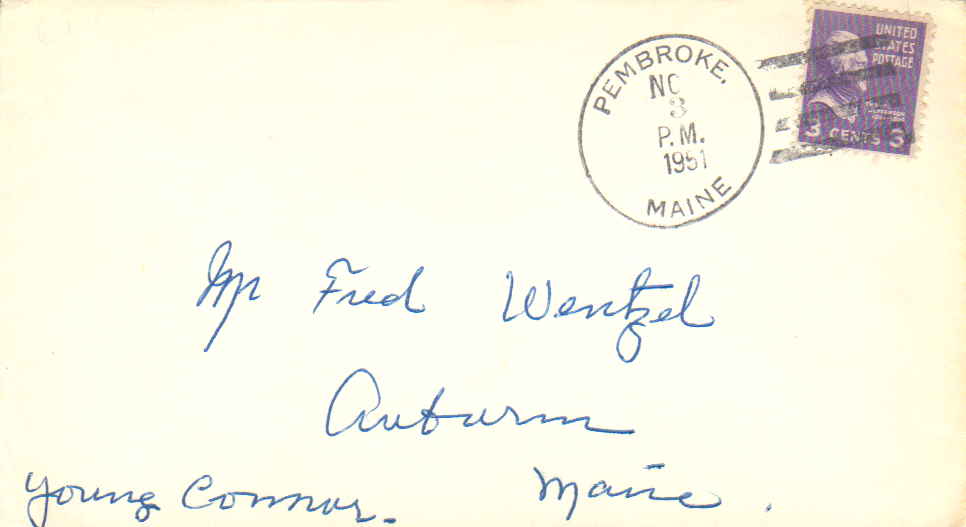 PEMBROKE,
NO
3
P.M.
1951
MAINE
UNITED
STATES
POSTAGE
3 CENTS 3
Mr Fred Wentzel
Auburn
Maine.
Young Connor.